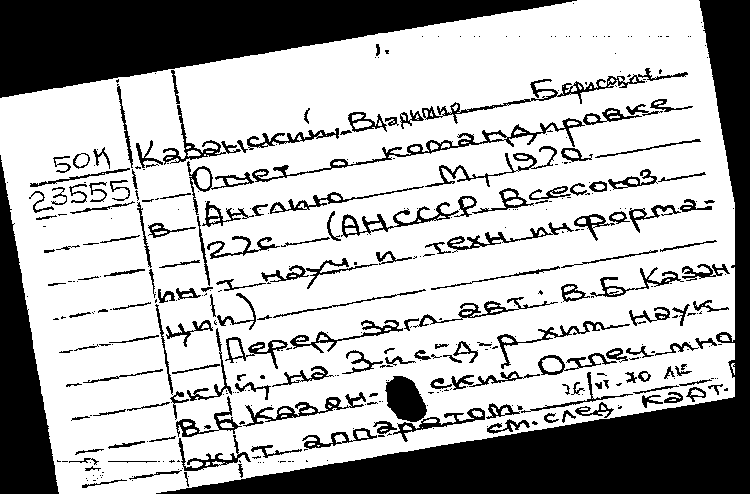 1.
Казанский, Владимир Борисович.
50К
23555
Отчет о командировке
в Англию М., 1970.
27с. (АНСССР. Всесоюз.
ин-т науч. и техн. информа-
ции).
Перед загл. авт.: В.Б Казан-
ский; на 3-й с-д-р хим. наук
В.Б.Казан- ский. Отпеч. мно
жит. аппаратом.
26/VI-70
см. след. карт.